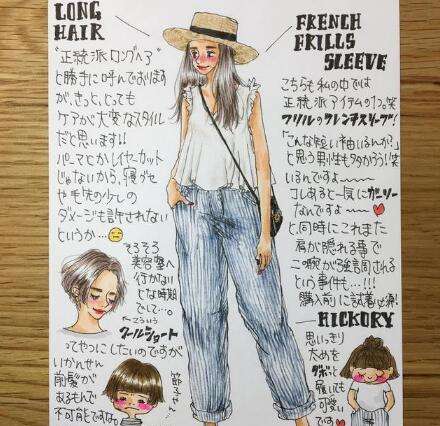 LONG
HAIR
"正統派ロングヘア"
と勝手に呼んでおります
が、きっと、とっても
ケアが大変なスタイル
だと思います!!
パーマとかレイヤーカット
じゃないから、寝グセ
や毛先の少しの
ダメージも許されない
というか…
そろそろ
美容室へ
行かない
とな時期
でして…。
こういう
クールショート
ってやつにしたいのですが
いかんせん
前髪が
あるもんで
不可能ですな。
FRENCH
FRILLS
SLEEVE
こちらも私の中では
正統派アイテムの1つ。笑
フリルのフレンチスリーブ!
「こんな短い袖いるんか?」
と思う男性も多かろう!笑
いるんですよ〜〜〜
コレあると一気にガーリー
なんですよ〜〜
と同時にこれまた
肩が隠れる事で
二の腕が強調される
という事件…!!!
購入前に試着必須!
HICKORY
思いっきり
太めを
ダボっと
履いても
可愛い
です